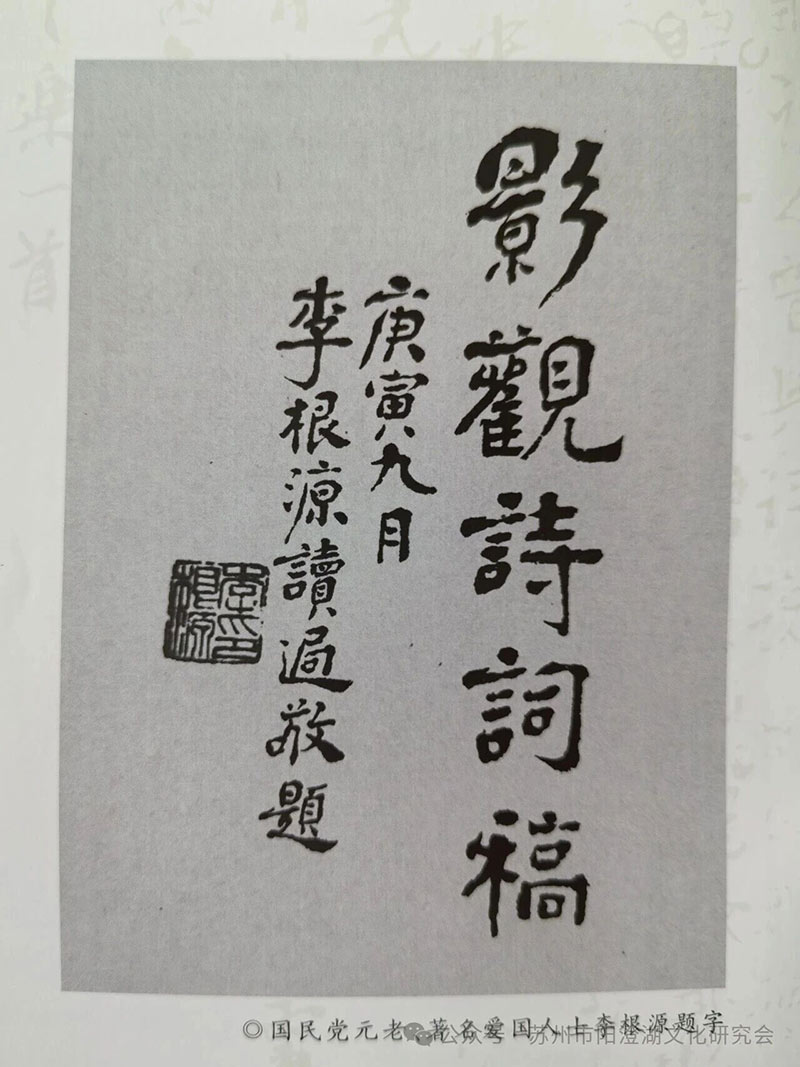 影觀詩詞稿
庚寅九月
李根源讀過敬題
李印
根源
◎国民党元老、著名爱国人士李根源题字
公众号 苏州市阳澄湖文化研究会